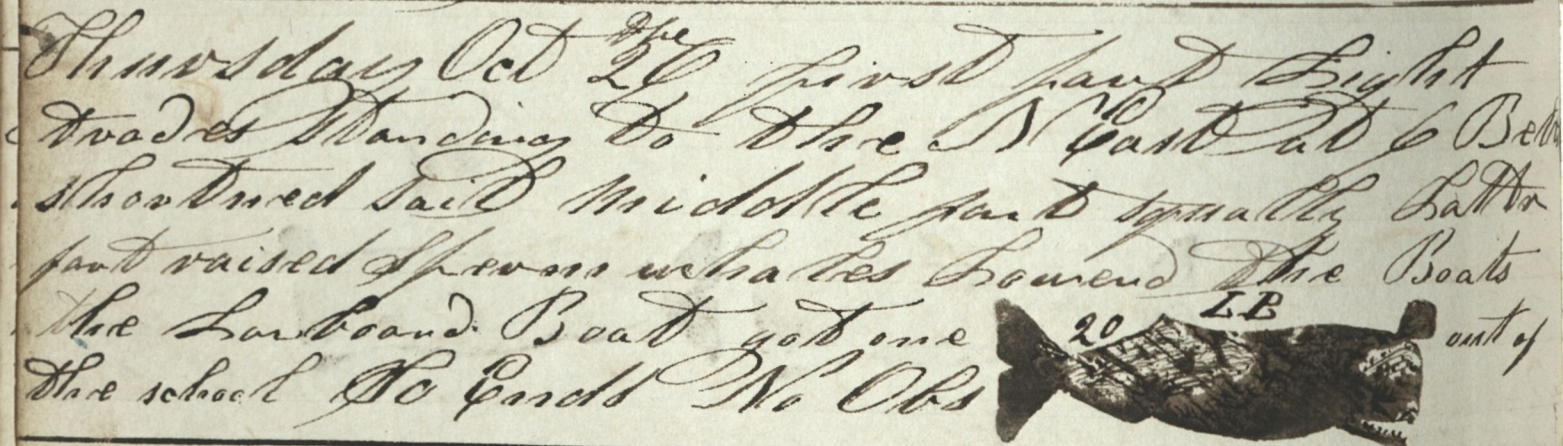 Thursday Oct 26 the first part Light
trades Standing to the N East at 6
shortned Sail middle part squally Lattr
part raised Sperm whales Lowerd the Boats
the Larboard Boat got one 20 LB out of
the school So Ends No Obs